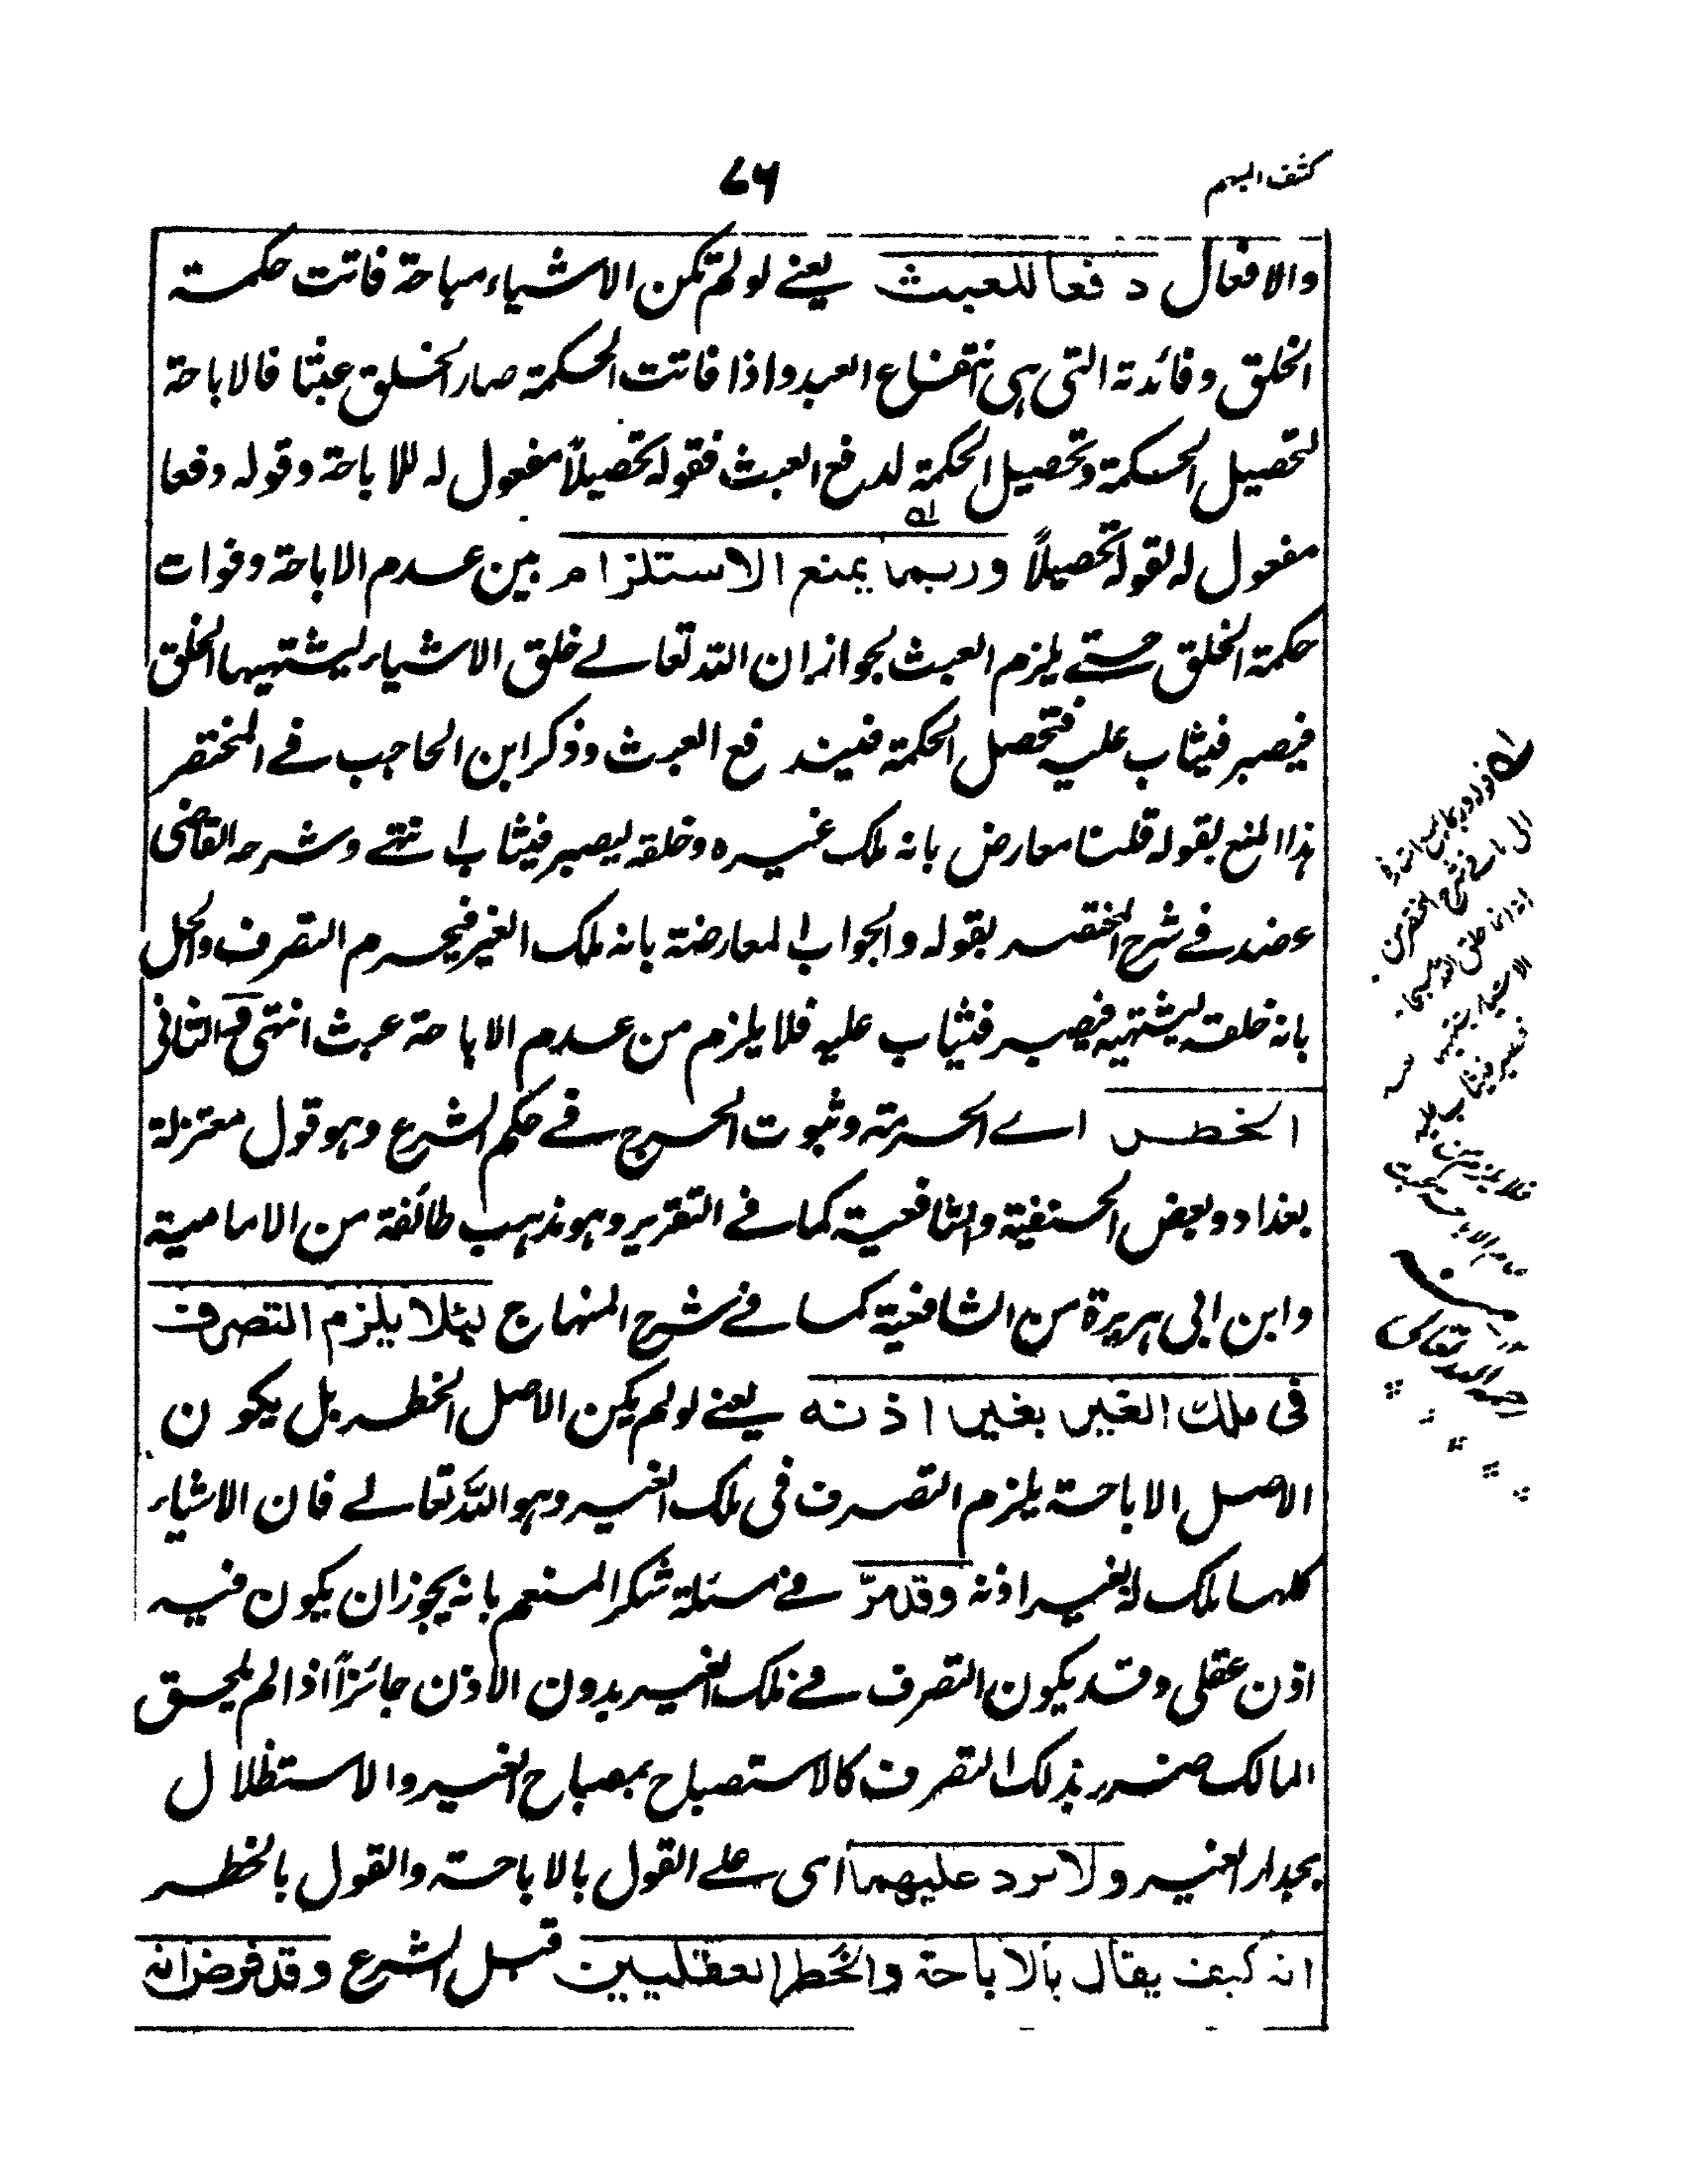 كشف المبهم
٧٦
والافعال دفعا للعبث يعنے لو لم تكن الاشياء مباحة فاتت حكمة
الخلق وفائدته التى هى انتفاع العبد واذا فاتت الحكمة صار الخلق عبثا فالاباحة
لتحصيل الحكمة وتحصيل الحكمة لدفع العبث فقوله تحصيلاً مفعول له للاباحة وقوله دفعا
مفعول له لقوله تحصيلاً وربما يمنع الاستلزام بين عدم الاباحة وفوات
حكمة الخلق حتے يلزم العبث لجواز ان الله تعالے خلق الاشياء ليشتهيها الخلق
فيصبر فيثاب عليه فتحصل الحكمة فيندفع العبث وذكر ابن الحاجب فے المختصر
هذا المنع بقوله قلنا معارض بانه ملك غيره وخلقه ليصبر فيثاب انتهے وشرحه القاضى
عضد فے شرح المختصر بقوله والجواب المعارضة بانه ملك الغير فيحرم التصرف والحل
بانه خلقه ليشتهيه فيصبر فيثاب عليه فلا يلزم من عدم الاباحة عبث انتهى والثانى
الخطر اے الحرمة وثبوت الحرج فے حكم الشرع وهو قول معتزلة
بغداد وبعض الحنفية والشافعية كما فے التقرير وهو مذهب طائفة من الامامية
وابن ابى هريرة من الشافعية كما فے شرح المنهاج لئلا يلزم التصرف
فى ملك الغير بغير اذنه يعنے لو لم يكن الاصل الخطر بل يكون
الاصل الاباحة يلزم التصرف فى ملك الغير وهو الله تعالے فان الاشياء
كلها ملك له بغير اذنه وقد مرّ فے مسئلة شكر المنعم بانه يجوز ان يكون فيه
اذن عقلى وقد يكون التصرف فے ملك الغير بدون الاذن جائزاً اذا لم يلحق
المالك ضرر بذلك التصرف كالاستصباح بمصباح الغير والاستظلال
بجدار الغير ولا يرد عليهما اى علے القول بالاباحة والقول بالخطر
انه كيف يقال بالاباحة والخطر العقليين قبل الشرع وقد فرض انه